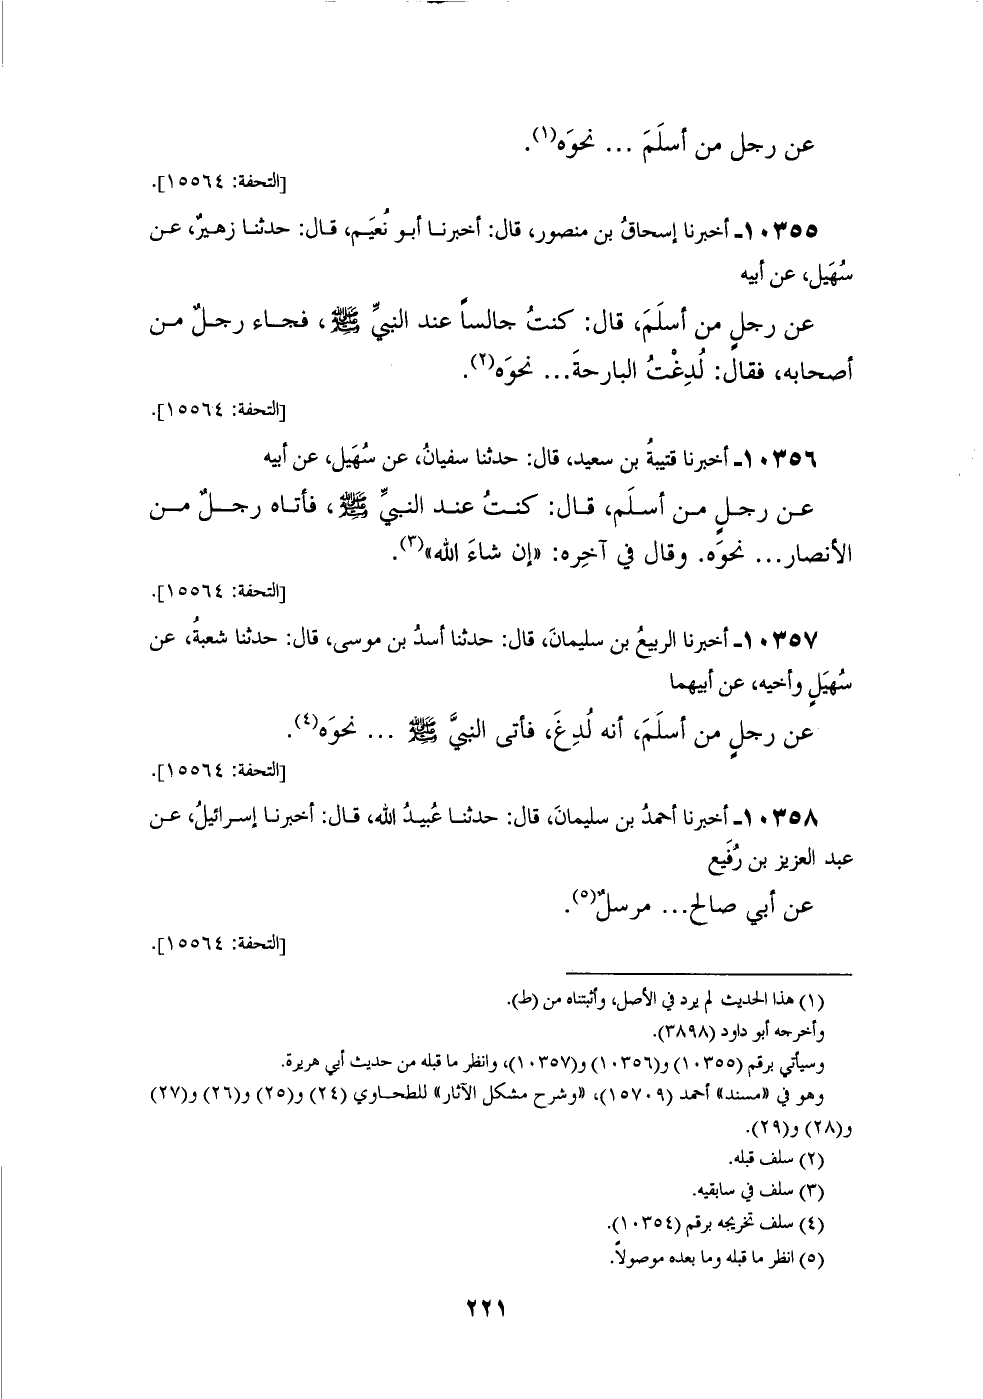 عن رجل من أسلَمَ ... نحوَه(١).
[التحفة: ١٥٥٦٤].
١٠٣٥٥ـ أخبرنا إسحاقُ بن منصور، قال: أخبرنا أبو نُعَيَم، قال: حدثنا زهيرٌ، عن
سُهَيَل، عن أبيه
عن رجلٍ من أسلَمَ، قال: كنتُ جالساً عند النبيِّ ﷺ، فجاء رجلٌ من
أصحابه، فقال: لُدِغْتُ البارحةَ... نحوَه(٢).
[التحفة: ١٥٥٦٤].
١٠٣٥٦ـ أخبرنا قتيبةُ بن سعيد، قال: حدثنا سفيانُ، عن سُهَيَل، عن أبيه
عن رجلٍ من أسلَم، قال: كنتُ عند النبيِّ ﷺ، فأتاه رجلٌ من
الأنصار... نحوَه. وقال في آخِرِه: «إن شاءَ الله»(٣).
[التحفة: ١٥٥٦٤].
١٠٣٥٧ـ أخبرنا الربيعُ بن سليمانَ، قال: حدثنا أسدُ بن موسى، قال: حدثنا شعبةُ، عن
سُهَيَلٍ وأخيه، عن أبيهما
عن رجلٍ من أسلَمَ، أنه لُدِغَ، فأتى النبيَّ ﷺ ... نحوَه(٤).
[التحفة: ١٥٥٦٤].
١٠٣٥٨ـ أخبرنا أحمدُ بن سليمانَ، قال: حدثنا عُبيدُ الله، قال: أخبرنا إسرائيلُ، عن
عبد العزيز بن رُفَيع
عن أبي صالح... مرسلٌ(٥).
[التحفة: ١٥٥٦٤].
(١) هذا الحديث لم يرد في الأصل، وأثبتناه من (ط).
وأخرجه أبو داود (٣٨٩٨).
وسيأتي برقم (١٠٣٥٥) و(١٠٣٥٦) و(١٠٣٥٧)، وانظر ما قبله من حديث أبي هريرة.
وهو في «مسند» أحمد (١٥٧٠٩)، «وشرح مشكل الآثار» للطحاوي (٢٤) و(٢٥) و(٢٦) و(٢٧)
و(٢٨) و(٢٩).
(٢) سلف قبله.
(٣) سلف في سابقيه.
(٤) سلف تخريجه برقم (١٠٣٥٤).
(٥) انظر ما قبله وما بعده موصولاً.
٢٢١